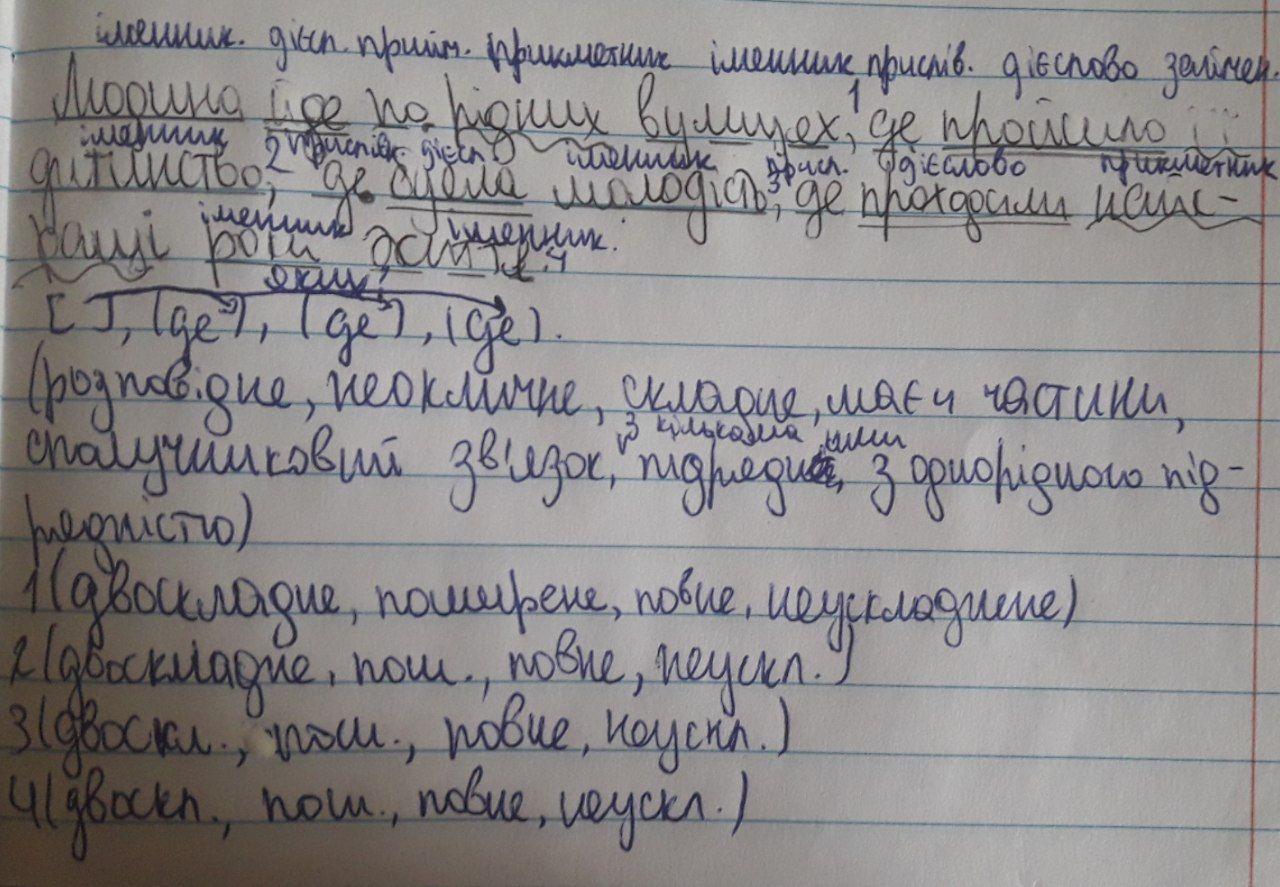 іменник. дієсл. прийм. прикметник іменник приспів. дієслово займен.
Людина йде по рідних вулицях,¹ де пройшло її
іменник приспів. дієсл іменник присл. дієслово прикметник
дитинство,² де цвіла молодість,³ де проходили найк-
іменник іменник.
ращі роки життя.⁴
яких?
[ ], (де), (де), (де).
(розповідне, неокличне, складне, має 4 частини,
з кількома ними
сполучниковий зв'язок, підрядне, з однорідною під-
рядністю)
1(двоскладне, поширене, повне, неускладнене)
2(двоскладне, пош., повне, неускл.)
3(двоскл., пош., повне, неускл.)
4(двоскл., пош., повне, неускл.)